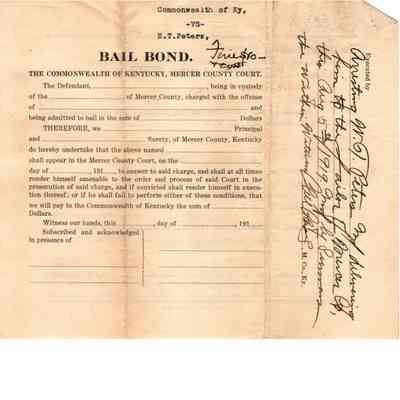 Commonwealth of Ky,
-VS-
M.T.Peters,
BAIL BOND.
Fine $10-
+ cost
THE COMMONWEALTH OF KENTUCKY, MERCER COUNTY COURT.
The Defendant, , being in custody
of the of Mercer County, charged with the offense
of and
being admitted to bail in the sum of Dollars
THEREFORE, we Principal
and Surety, of Mercer County, Kentucky
do hereby undertake that the above named
shall appear in the Mercer County Court, on the
day of , 191 , to answer to said charge, and shall at all times
render himself amenable to the order and process of said Court in the
prosecution of said charge, and if convicted shall render himself in execu-
tion thereof; or if he shall fail to perform either of these conditions, that
we will pay to the Commonwealth of Kentucky the sum of
Dollars.
Witness our hands, this , day of , 191
Subscribed and acknowledged
in presence of
Executed by
Arresting M.T. Peters and delivering
him to the Jailer of Mercer Co,
this Aug 5 1919 and
the within
M. Co., Ky.